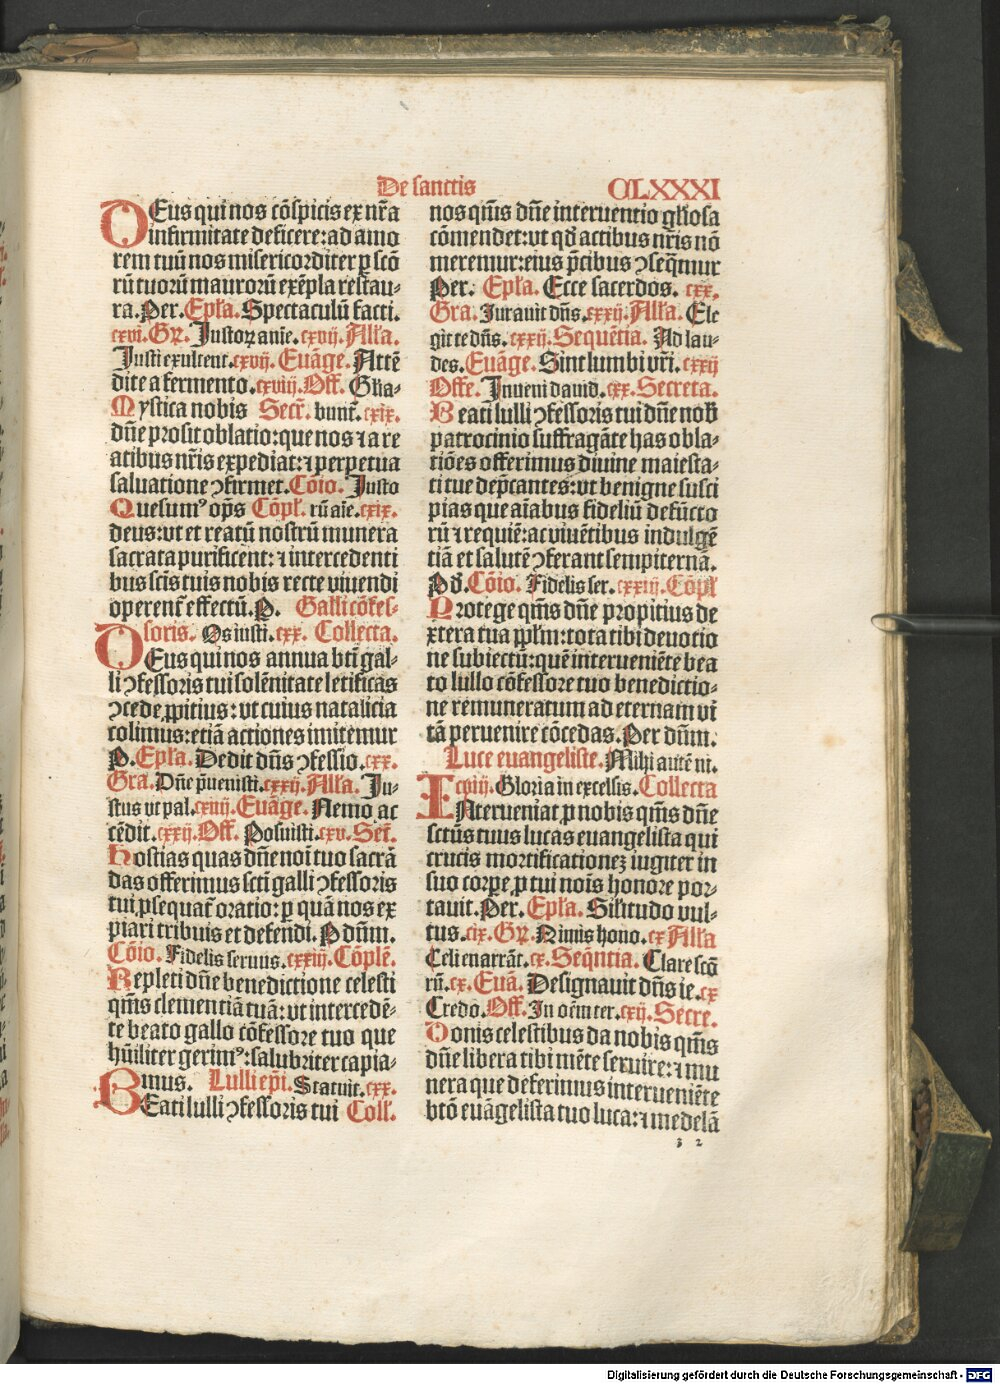 De sanctis
CLXXXI
DEus qui nos cōspicis ex nr̄a
infirmitate deficere: ad amo
rem tuū nos misericorditer ꝑ scō
rū tuorū maurorū exēpla restau-
ra. Per. Epła. Spectaculū facti.
cxvi. Gꝝ. Iustoꝝ anīe. cxvij. Ałła.
Iusti exultent. cxvij. Euāge. Attē
dite a fermento. cxviij. Off. Gl̄ia-
Mystica nobis Secr̄. bunt̄. cxix.
dn̄e prosit oblatio: que nos ⁊ a re
atibus nr̄is expediat: ⁊ perpetua
saluatione ꝯfirmet. Cōio. Iusto
Quesumꝰ op̄s Cōpł. rū aīe. cxix.
deus: vt et reatū nostrū munera
sacrata purificent: ⁊ intercedenti
bus scīs tuis nobis recte viuendi
operent̄ effectū. P. Galli cōfes-
soris. Os iusti. cxx. Collecta.
DEus qui nos annua bt̄i gal-
li ꝯfessoris tui solēnitate letificas
ꝯcede ꝓpitius: vt cuius natalicia
colimus: etiā actiones imitemur
P. Epła. Dedit dn̄s ꝯfessio. cxx.
Gra. Dn̄e p̄uenisti. cxxij. Ałła. Iu-
stus vt pal. cxiiij. Euāge. Nemo ac
cēdit. cxxij. Off. Posuisti. cxv. Secr̄.
Hostias quas dn̄e noī tuo sacrā
das offerimus sctī galli ꝯfessoris
tui ꝓsequat̄ oratio: ꝑ quā nos ex
piari tribuis et defendi. P dn̄m.
Cōio. Fidelis seruus. cxxiij. Cōplē.
Repleti dn̄e benedictione celesti
qm̄s clementiā tuā: vt intercedē-
te beato gallo cōfessore tuo que
hūiliter gerimꝰ: salubriter capia-
mus. Lulli ep̄i. Statuit. cxx.
BEati lulli ꝯfessoris tui Coll.
nos qm̄s dn̄e interuentio gl̄iosa
cōmendet: vt qđ actibus nr̄is nō
meremur: eius p̄cibus ꝯseq̄mur
Per. Epła. Ecce sacerdos. cxx.
Gra. Iurauit dn̄s. cxxij. Ałła. Ele
git te dn̄s. cxxij. Sequētia. Ad lau-
des. Euāge. Sint lumbi vr̄i. cxxij
Offe. Inueni dauid. cxx. Secreta.
Beati lulli ꝯfessoris tui dn̄e nob̄
patrocinio suffragāte has obla-
tiōes offerimus diuine maiesta-
ti tue dep̄cantes: vt benigne susci
pias que aīabus fideliū defūcto
rū ⁊ requiē: ac viuētibus indulgē
tiā et salutē ꝯferant sempiternā.
Pđ. Cōio. Fidelis ser. cxxiij. Cōpł
Protege qm̄s dn̄e propitius de
xtera tua ppl̄m: tota tibi deuotio
ne subiectū: quē interueniēte bea
to lullo cōfessore tuo benedictio-
ne remuneratum ad eternam vi
tā peruenire cōcedas. Per dn̄m.
Luce euangeliste. Mihi autē ni.
cpiij. Gloria in excelsis. Collecta
INterueniat ꝑ nobis qm̄s dn̄e
sctūs tuus lucas euangelista qui
crucis mortificationeꝫ iugiter in
suo corꝑe ꝓ tui noīs honore por-
tauit. Per. Epła. Sil̄itudo vul-
tus. cix. Gꝝ. Nimis hono. cx Ałła
Celi enarrāt. cx. Seqn̄tia. Clare scō
rū. cx. Euā. Designauit dn̄s ie. cx
Credo. Off. In oēm ter. cxij. Secre.
Donis celestibus da nobis qm̄s
dn̄e libera tibi mēte seruire: ⁊ mu
nera que deferimus interueniēte
btō euāgelista tuo luca: ⁊ medelā
3 2
Digitalisierung gefördert durch die Deutsche Forschungsgemeinschaft - DFG